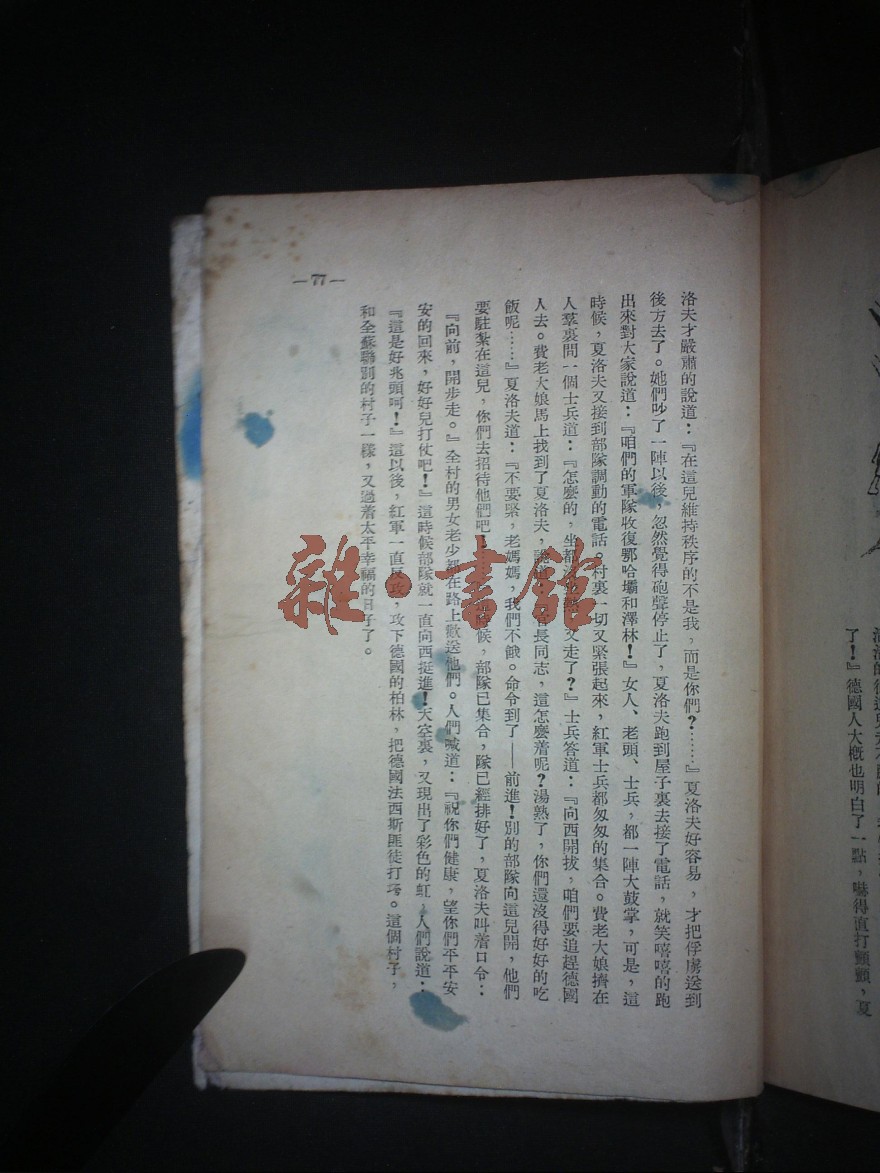 了！』德國人大槪也明白了一點，嚇得直打顫顫，夏
洛夫才嚴肅的說道：『在這兒維持秩序的不是我，而是你們？……』夏洛夫好容易，才把俘虜送到
後方去了。她們吵了一陣以後，忽然覺得砲聲停止了，夏洛夫跑到屋子裏去接了電話，就笑嘻嘻的跑
出來對大家說道：『咱們的軍隊收復鄂哈壩和澤林！』女人、老頭、士兵，都一陣大鼓掌，可是，這
時候，夏洛夫又接到部隊調動的電話。村裏一切又緊張起來，紅軍士兵都匆匆的集合。費老大娘擠在
人羣裏問一個士兵道：『怎麼的，坐都又走了？』士兵答道：『向西開拔，咱們要追趕德國
人去。費老大娘馬上找到了夏洛夫，說道長同志，這怎麼着呢？湯熟了，你們還沒得好好的吃
飯呢……』夏洛夫道：『不要緊，老媽媽，我們不餓。命令到了——前進！別的部隊向這兒開，他們
要駐紮在這兒，你們去招待他們吧！時候，部隊已集合，隊已經排好了，夏洛夫叫着口令：
『向前，開步走。』全村的男女老少都在路上歡送他們。人們喊道：『祝你們健康，望你們平平安
安的回來，好好兒打仗吧！』這時候部隊就一直向西挺進！天空裏，又現出了彩色的虹，人們說道：
『這是好兆頭呵！』這以後，紅軍一直反攻，攻下德國的柏林，把德國法西斯匪徒打垮。這個村子，
和全蘇聯別的村子一樣，又過着太平幸福的日子了。
—77—
雜·書館